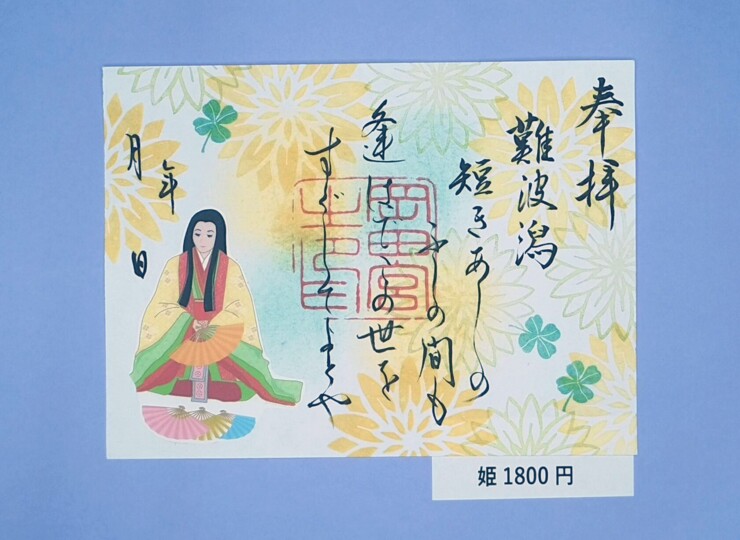 奉拝
難波潟
短きあしの
ふしの間も
逢はでこの世を
すぐしてよとや
年
月 日
姫 1800 円